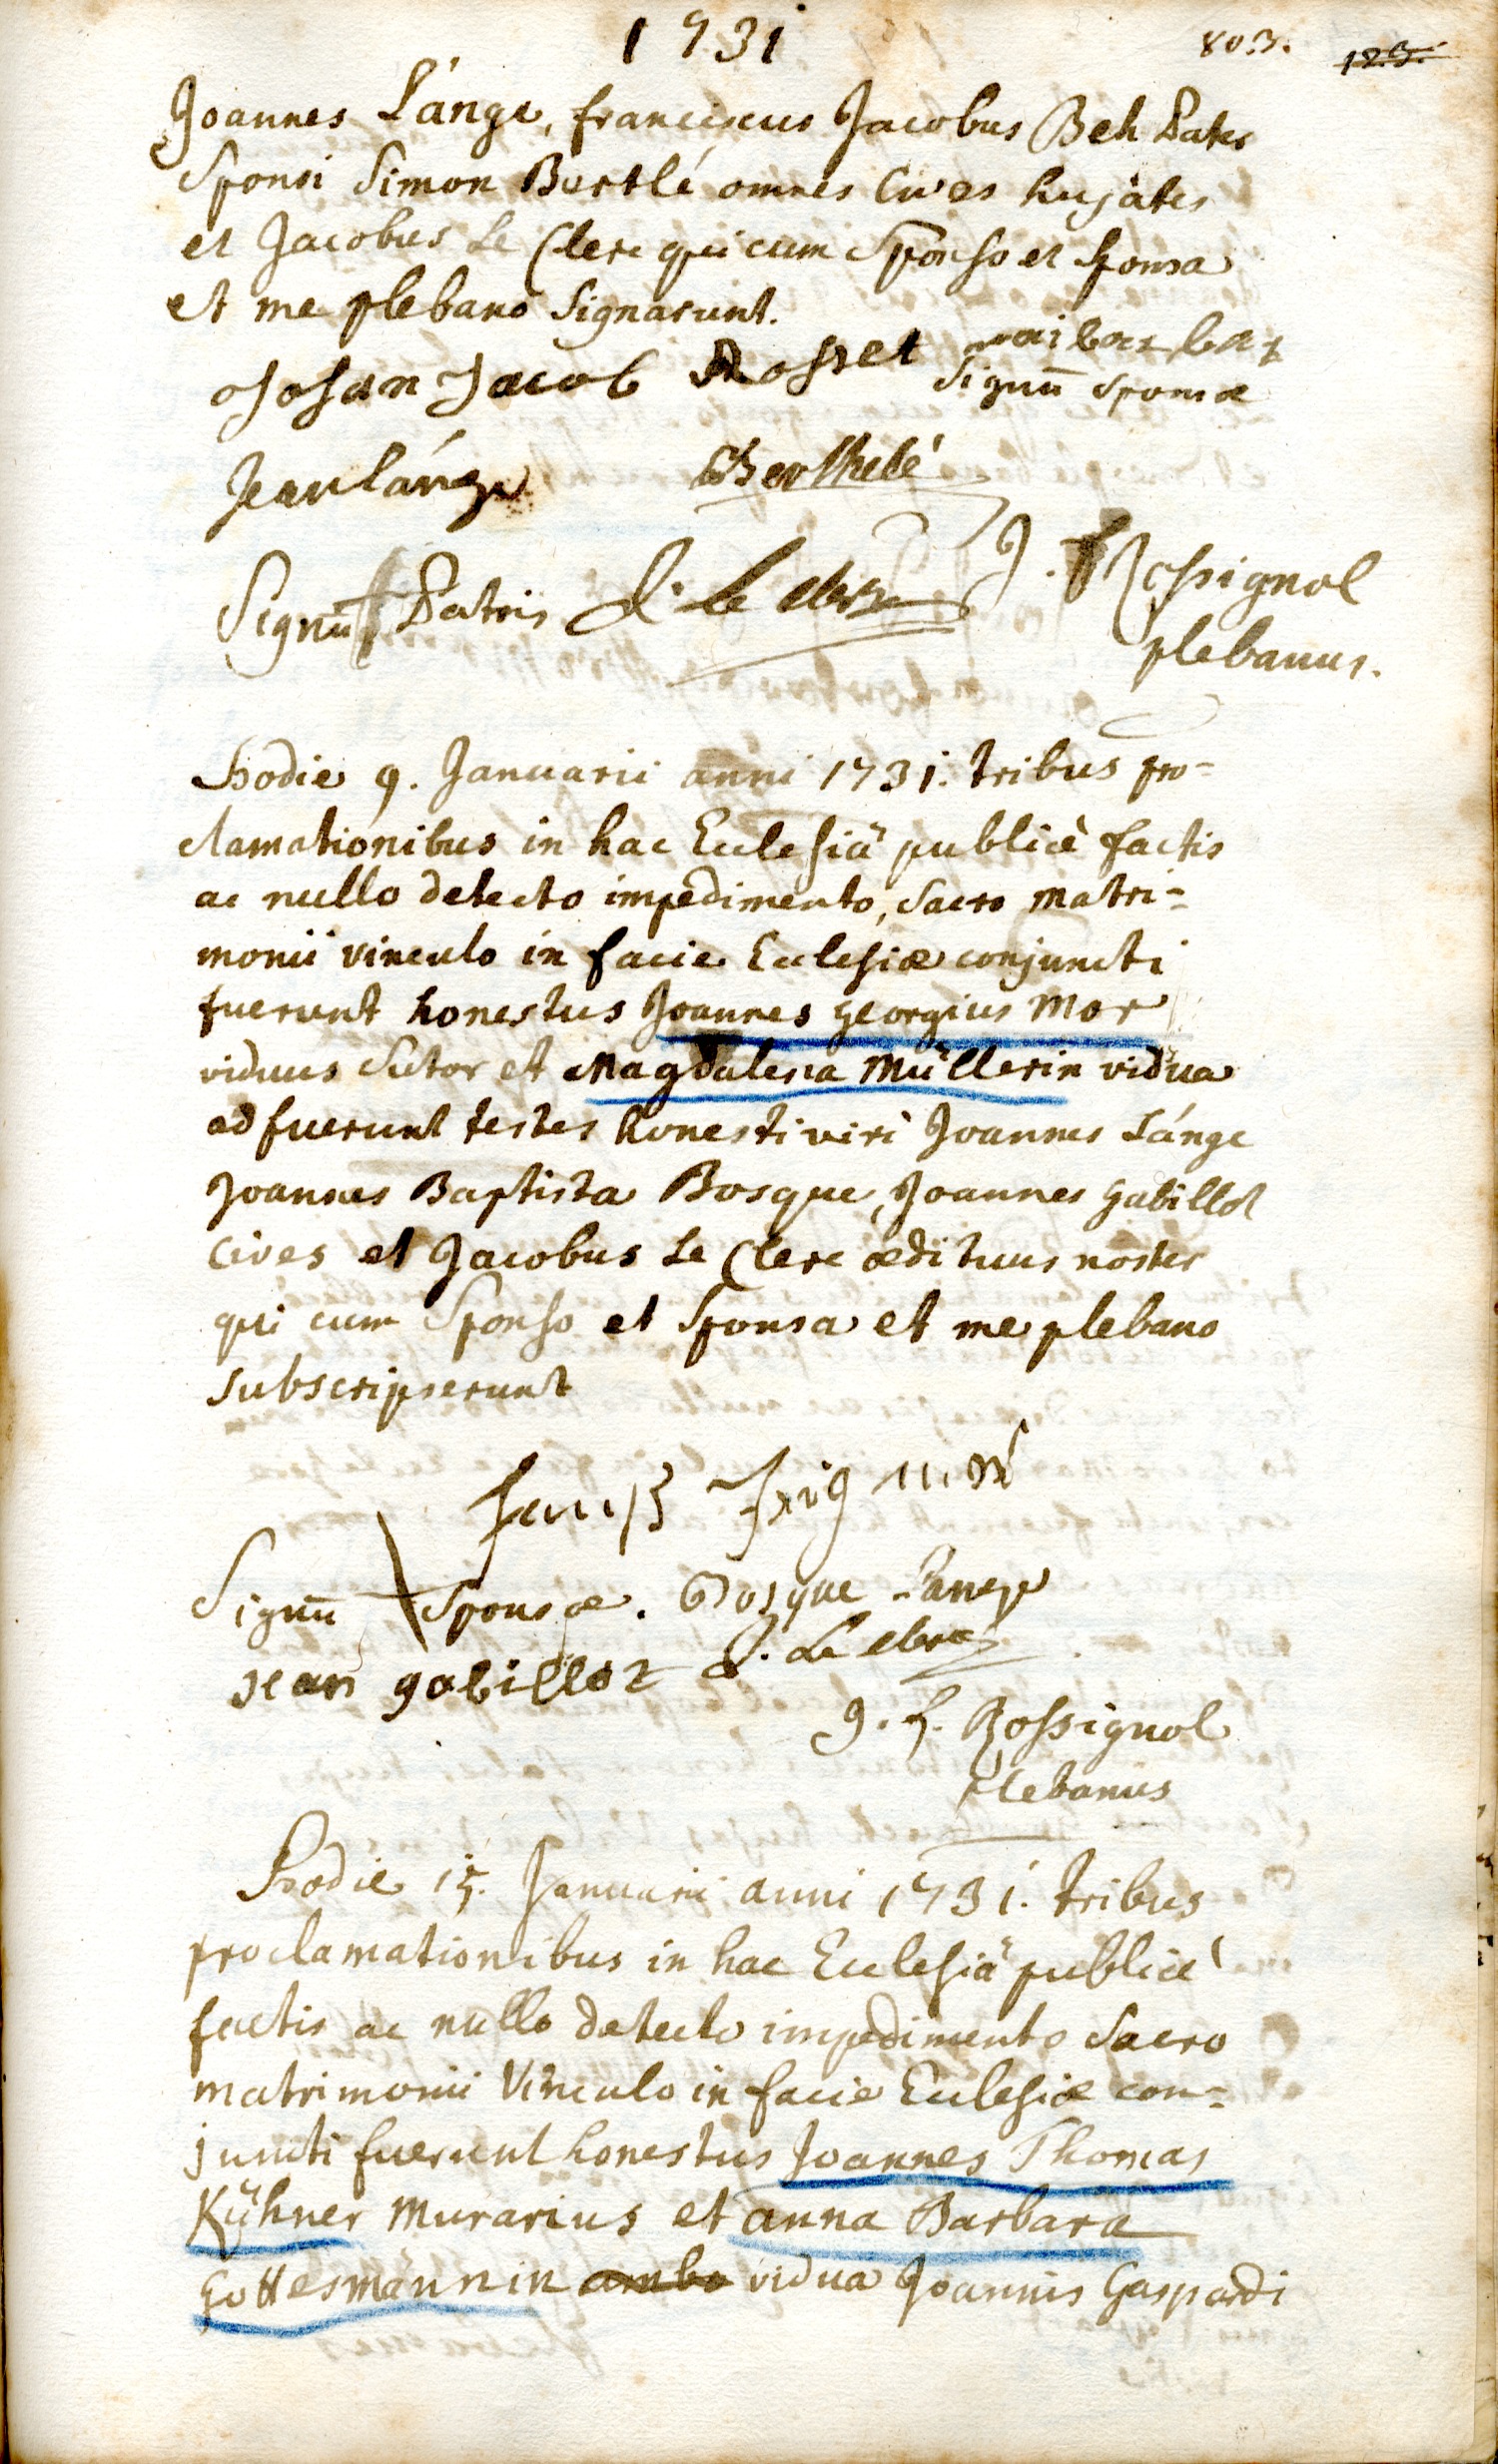 1731
803. 123.
Joannes Lánge, franciscus Jacobus Beh Pater
Sponsi Simon Bertlé omnes Cives hujates
et Jacobus Le Clerc qui cum Sponso et Sponsa
et me plebano Signarunt.
Johan Jacob Rosset
Signū Sponsæ
Jean lánge Berthelé
Signū Patris J. le clerc J. f Rossignol
plebanus.
Hodie 9. Januarii anni 1731. tribus pro=
clamationibus in hac Ecclesiâ publicè factis
ac nullo detecto impedimento, sacro matri=
monii vinculo in facie Ecclesiæ conjuncti
fuerunt honestus Joannes georgius Mor
viduus Sutor et Magdalena Müllerin vidua
adfuerunt testes honesti viri Joannes Lánge
Joannes Baptista Bosque, Joannes gabillot
Cives et Jacobus Le Clerc ædituus noster
qui cum Sponso et Sponsa et me plebano
subscripserunt
Signū Sponsæ. Bosque Lange
jean gabillot J. Le clerc
J. f. Rossignol
plebanus
Hodie 15. Januarii anni 1731. tribus
proclamationibus in hac Ecclesiâ publicè
factis ac nullo detecto impedimento Sacro
matrimonii Vinculo in facie Ecclesiæ con=
juncti fuerunt honestus Joannes Thomas
Kühner Murarius et anna Barbara
gottesmännin ambo vidua Joannis Gaspardi